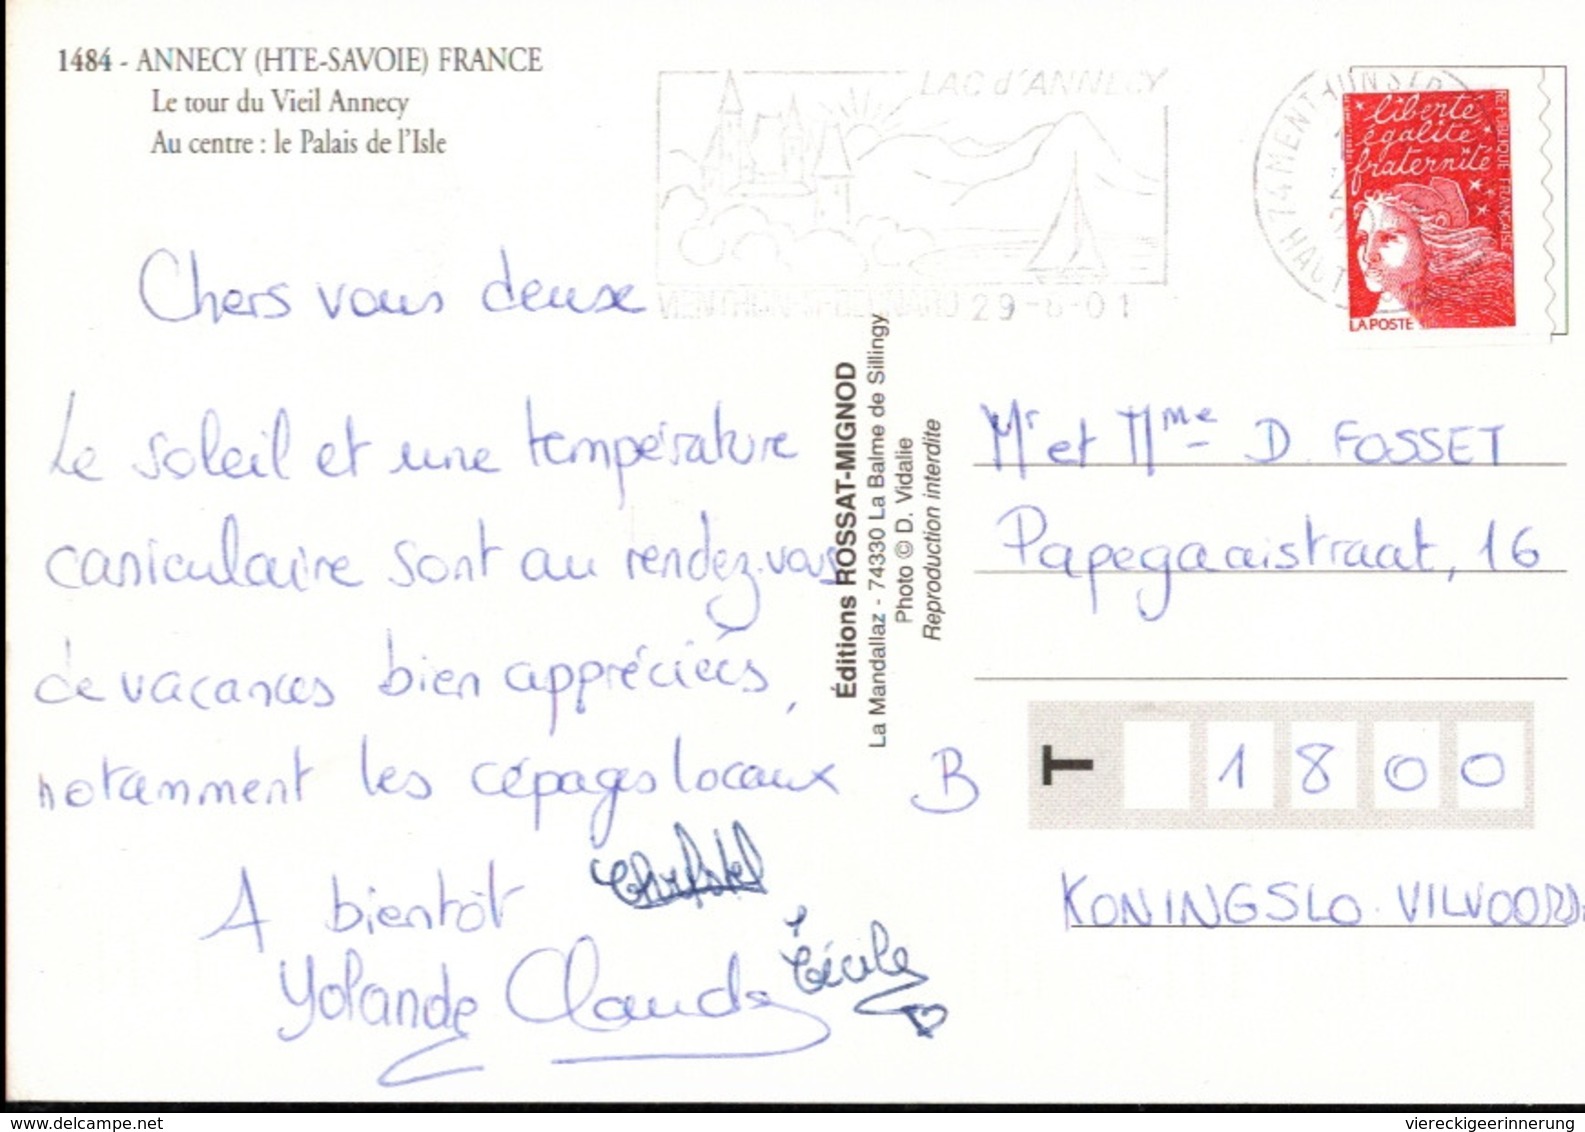 1484 - ANNECY (HTE-SAVOIE) FRANCE
Le tour du Vieil Annecy
Au centre : le Palais de l'Isle
LAC d'ANNECY
MENTHON-ST-BERNARD 29-6-01
74 MENTHON ST
HAUTE
liberté
égalité
fraternité
RÉPUBLIQUE FRANÇAISE
LA POSTE
Chers vous deux
Le soleil et une température
caniculaire sont au rendez-vous
de vacances bien appréciées,
notamment les cépages locaux
A bientôt
Yolande Claude Cécile
Éditions ROSSAT-MIGNOD
La Mandallaz - 74330 La Balme de Sillingy
Photo © D. Vidalie
Reproduction interdite
Mr et Mme D. FOSSET
Papegaaistraat, 16
B T 1800
KONINGSLO. VILVOORDE
delcampe.net
viereckigeerinnerung